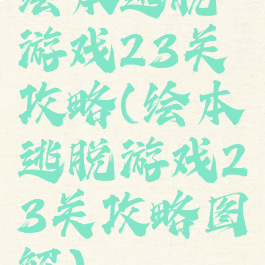 绘本逃脱
游戏23关
攻略(绘本
逃脱游戏2
3关攻略图
解)